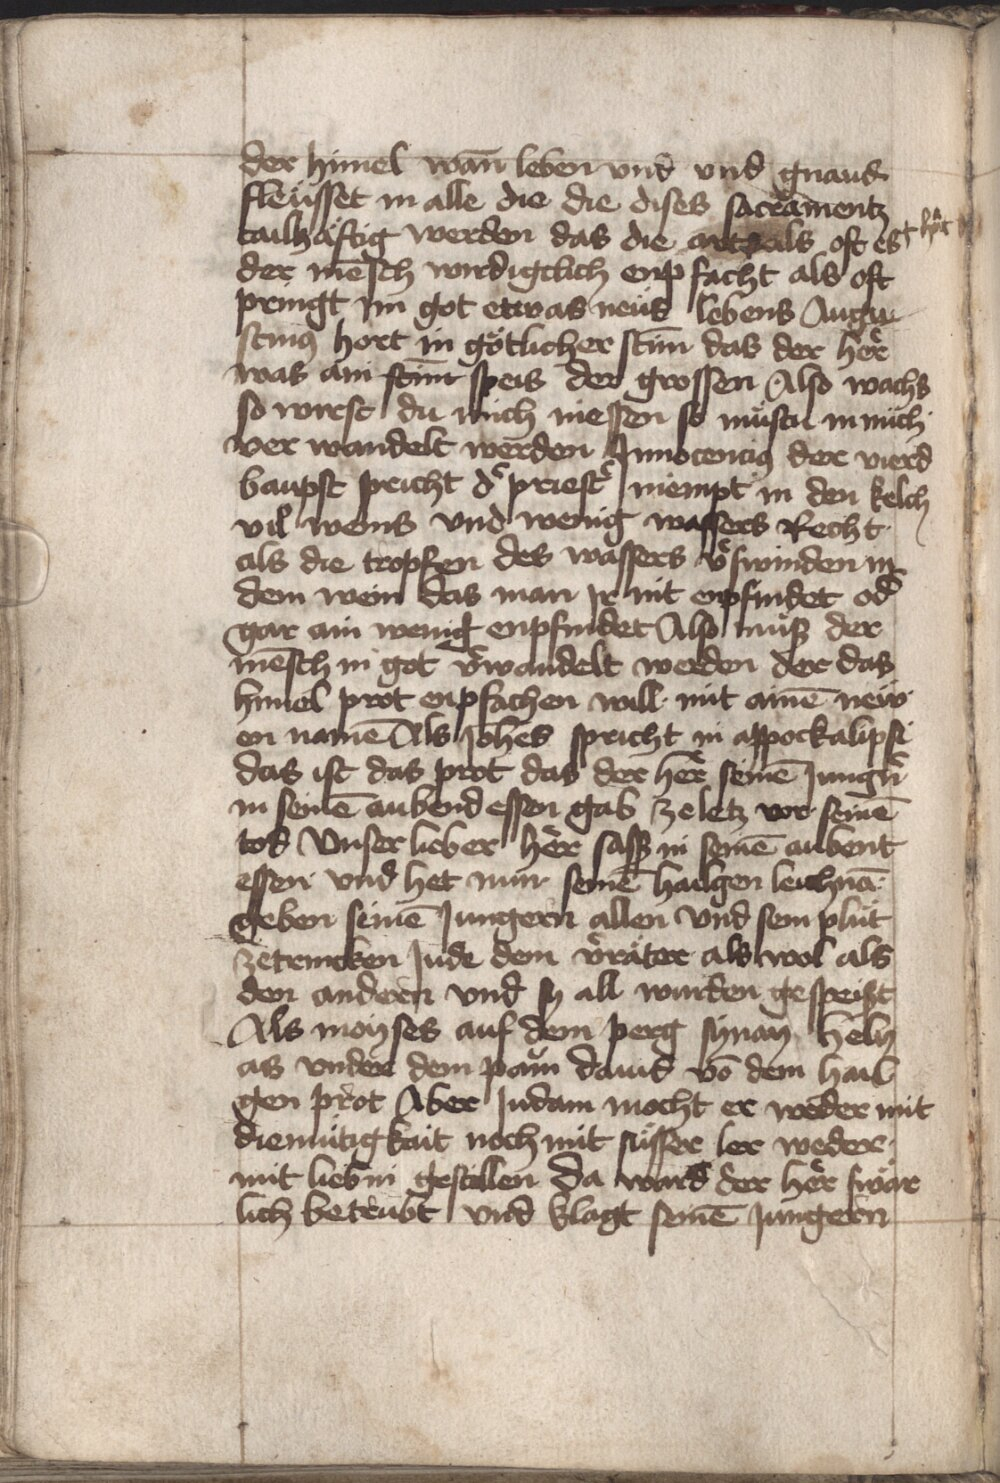 der himel wan̄ leben vnd vnd gnaud
fleüsset in alle die die dises sacrāmentz
tailhäftig werden das die als oft es
der mēsch wirdigclich enpfacht als oft
pringt im got etwas neüs lebens Augu
stinꝰ hort in götlicher stim̄ das der her̄
was ain stim̄ speis der grossen Also wachs
so wirst du mich niessen so müstu in mich
ver wandelt werden Innocencius der vierd
baupst spricht d᷑ priest᷑ niempt in den kelch
vil weins vnd wenig wassers Recht
als die tropfen des wassers v᷑swinden in
dem wein das man Ir nit enpfindet od᷑
gar ain wenig enpfindet Also müß der
mēsch in got v᷑wandelt werden der das
himel prot enpfachen will mit ainē neẅ
en namē Als Joh̄es spricht in appockalipsi
das ist das prot das der her̄ seinē Jungn᷑
in seinē aubend essen gab ze letz vor seinē
tod Vnser lieber her̄ saß in seinē aubent
essen vnd het nun seinē hailgen leichnā
geben seinē Jungern allen vnd sein plüt
zetrincken Jude dem v᷑räter als wol als
den andern vnd sy all wurden gespeist
Als moyses auf dem perg synay Hely
as vnder dem paum̈ dauid vō dem hail
gen prot Aber Judam mocht er weder mit
diemütigkait noch mit süsser ler weder
mit lieb in gestillen Da ward der her̄ swär
lich betrübt vnd klagt seinē Jungern